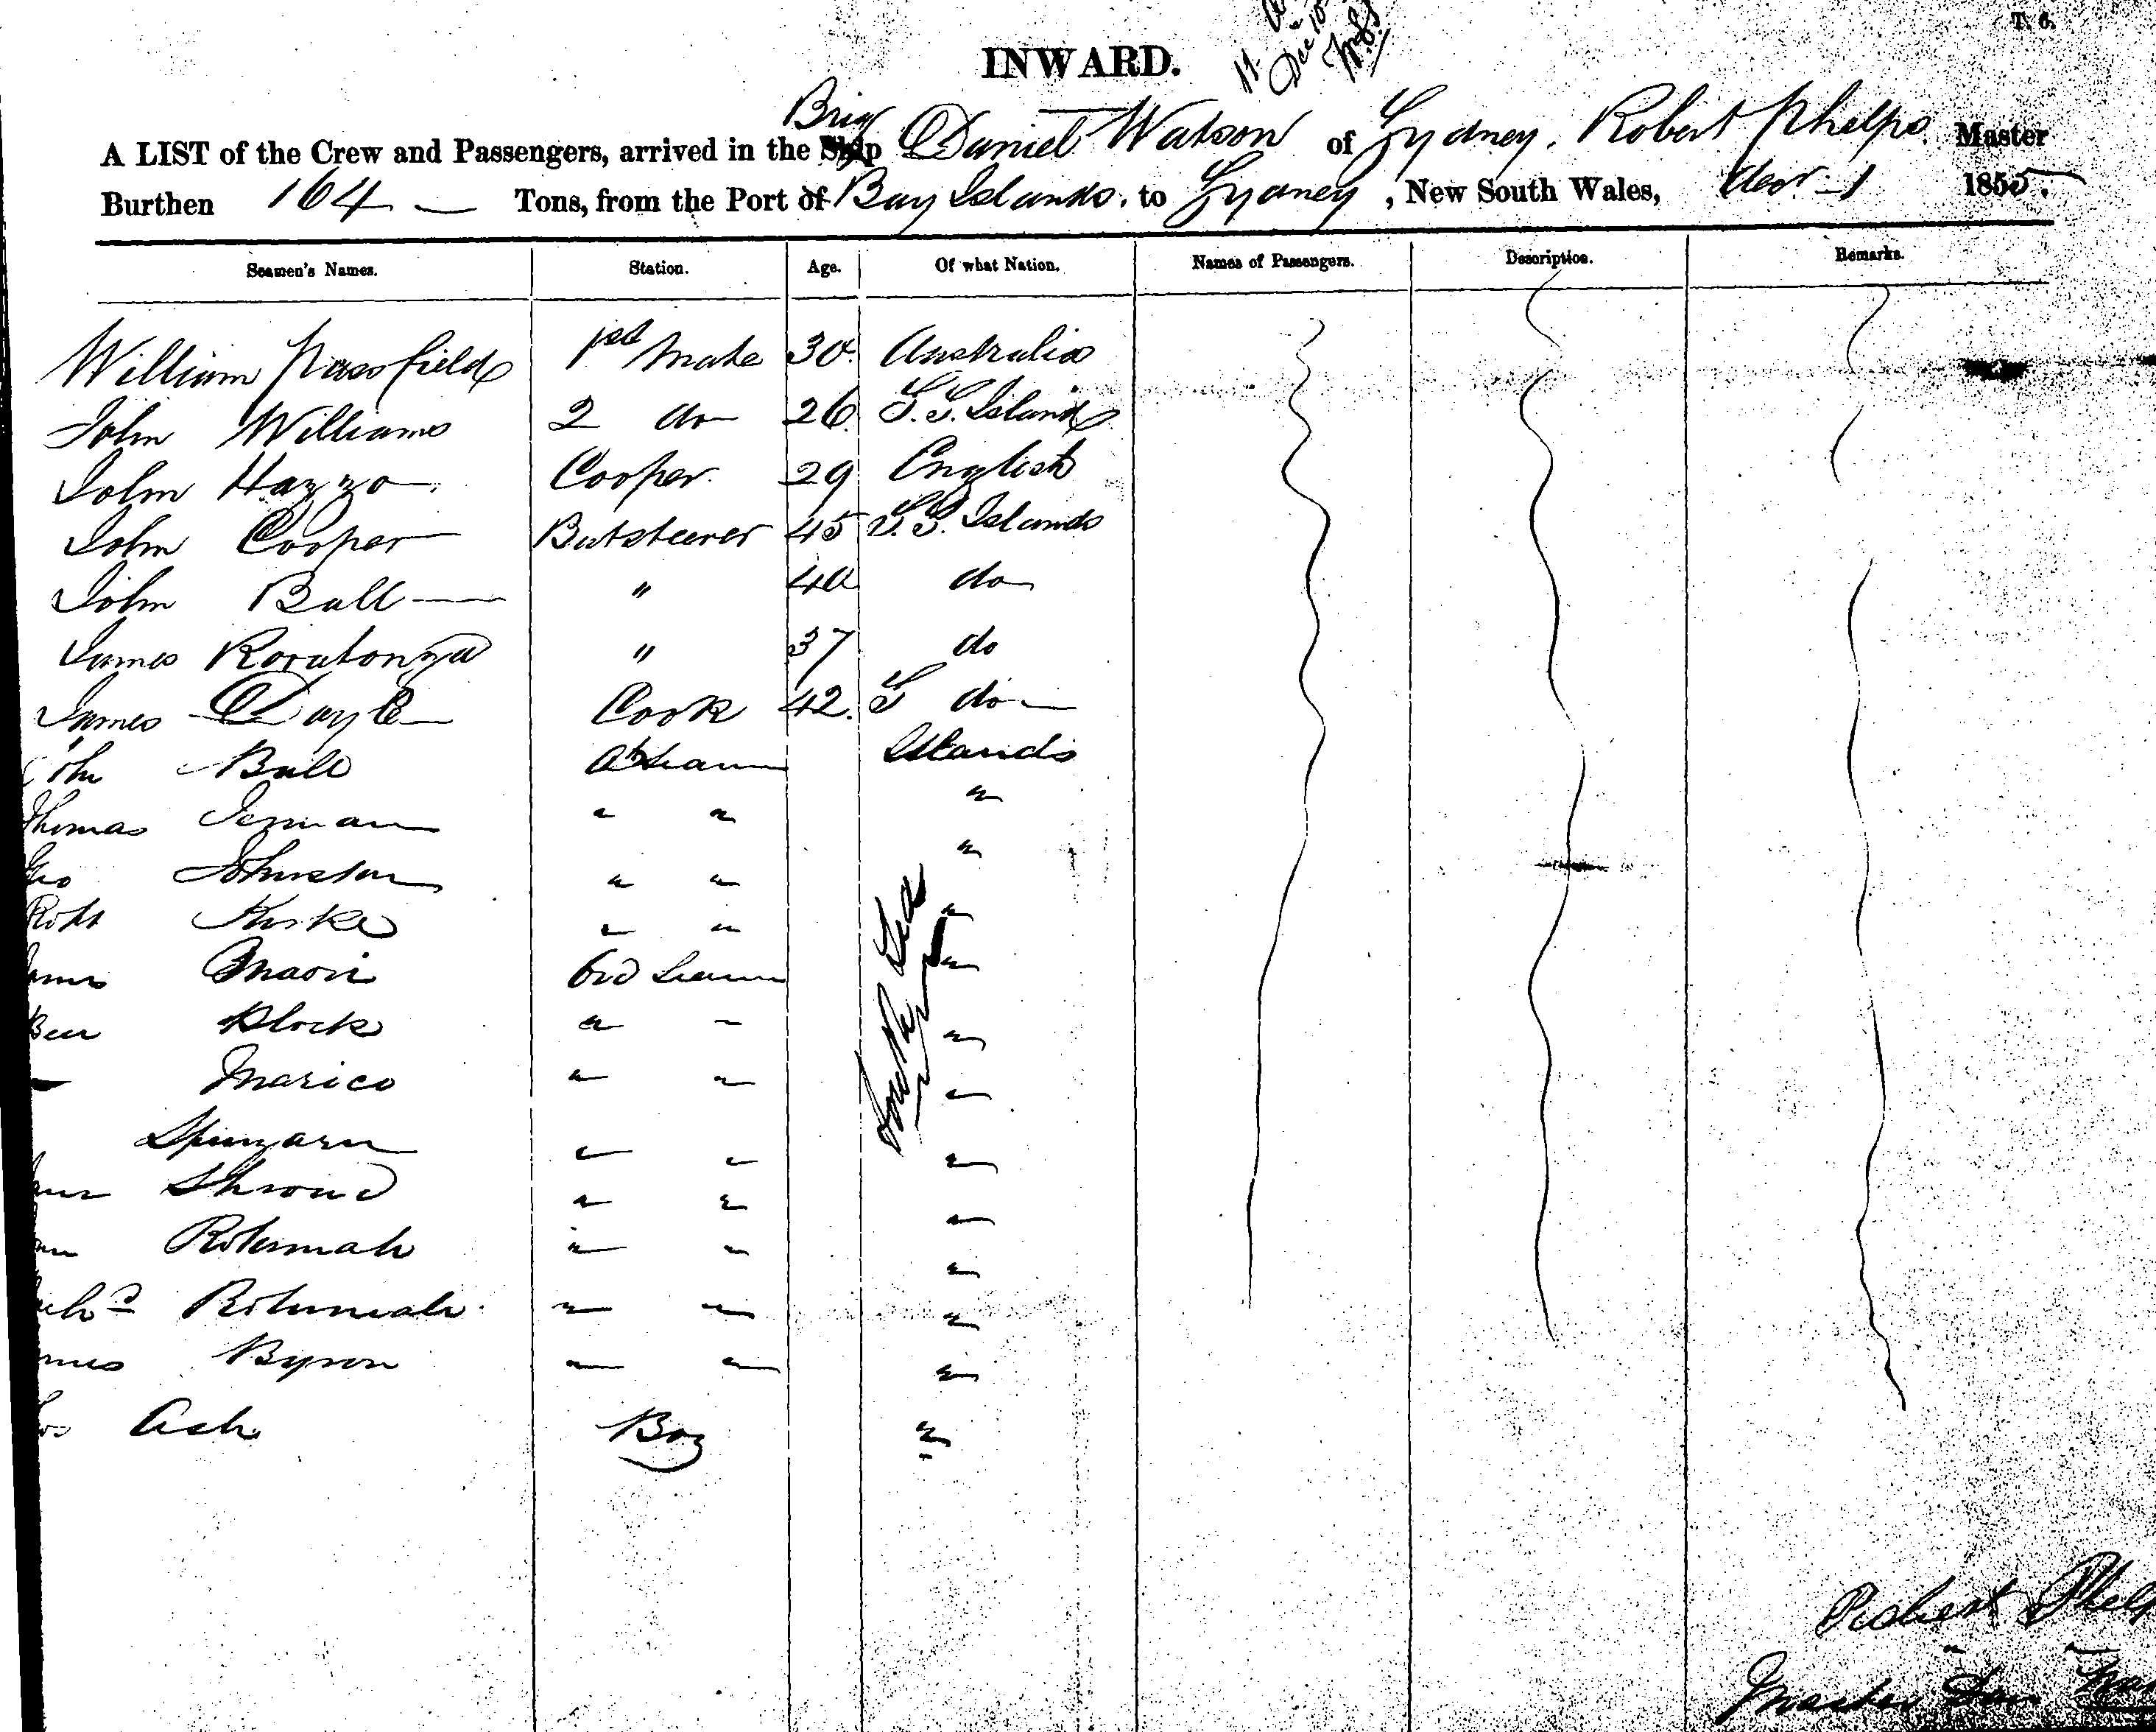 T. 6.
INWARD.
Dec 10
Brig
A LIST of the Crew and Passengers, arrived in the Ship Daniel Watson of Sydney, Robert Phelps Master
Burthen 164 — Tons, from the Port of Bay Islands. to Sydney, New South Wales, 1 1855.
Seamen's Names. Station. Age. Of what Nation. Names of Passengers. Description. Remarks.
William Passfield 1st Mate 30 Australia
John Williams 2 do 26 S. S. Islands
John Hazzo 29 Cooper English
John Cooper Butsteerer 45 S. S. Islands
John Ball " 40 do
James Roratonga " 37 do
James Doyle Cook 42. S do
John Ball Islands
Thomas Jerman " " "
Geo Johnston " " "
Robt " " "
Maori Ord Seam "
Ben Block " " "
Marico " " "
" " "
Shroud " " "
Rotumah " " "
Rotumah " " "
Byron " " "
Ash Boy "
South Sea
Robert Phelp
Master